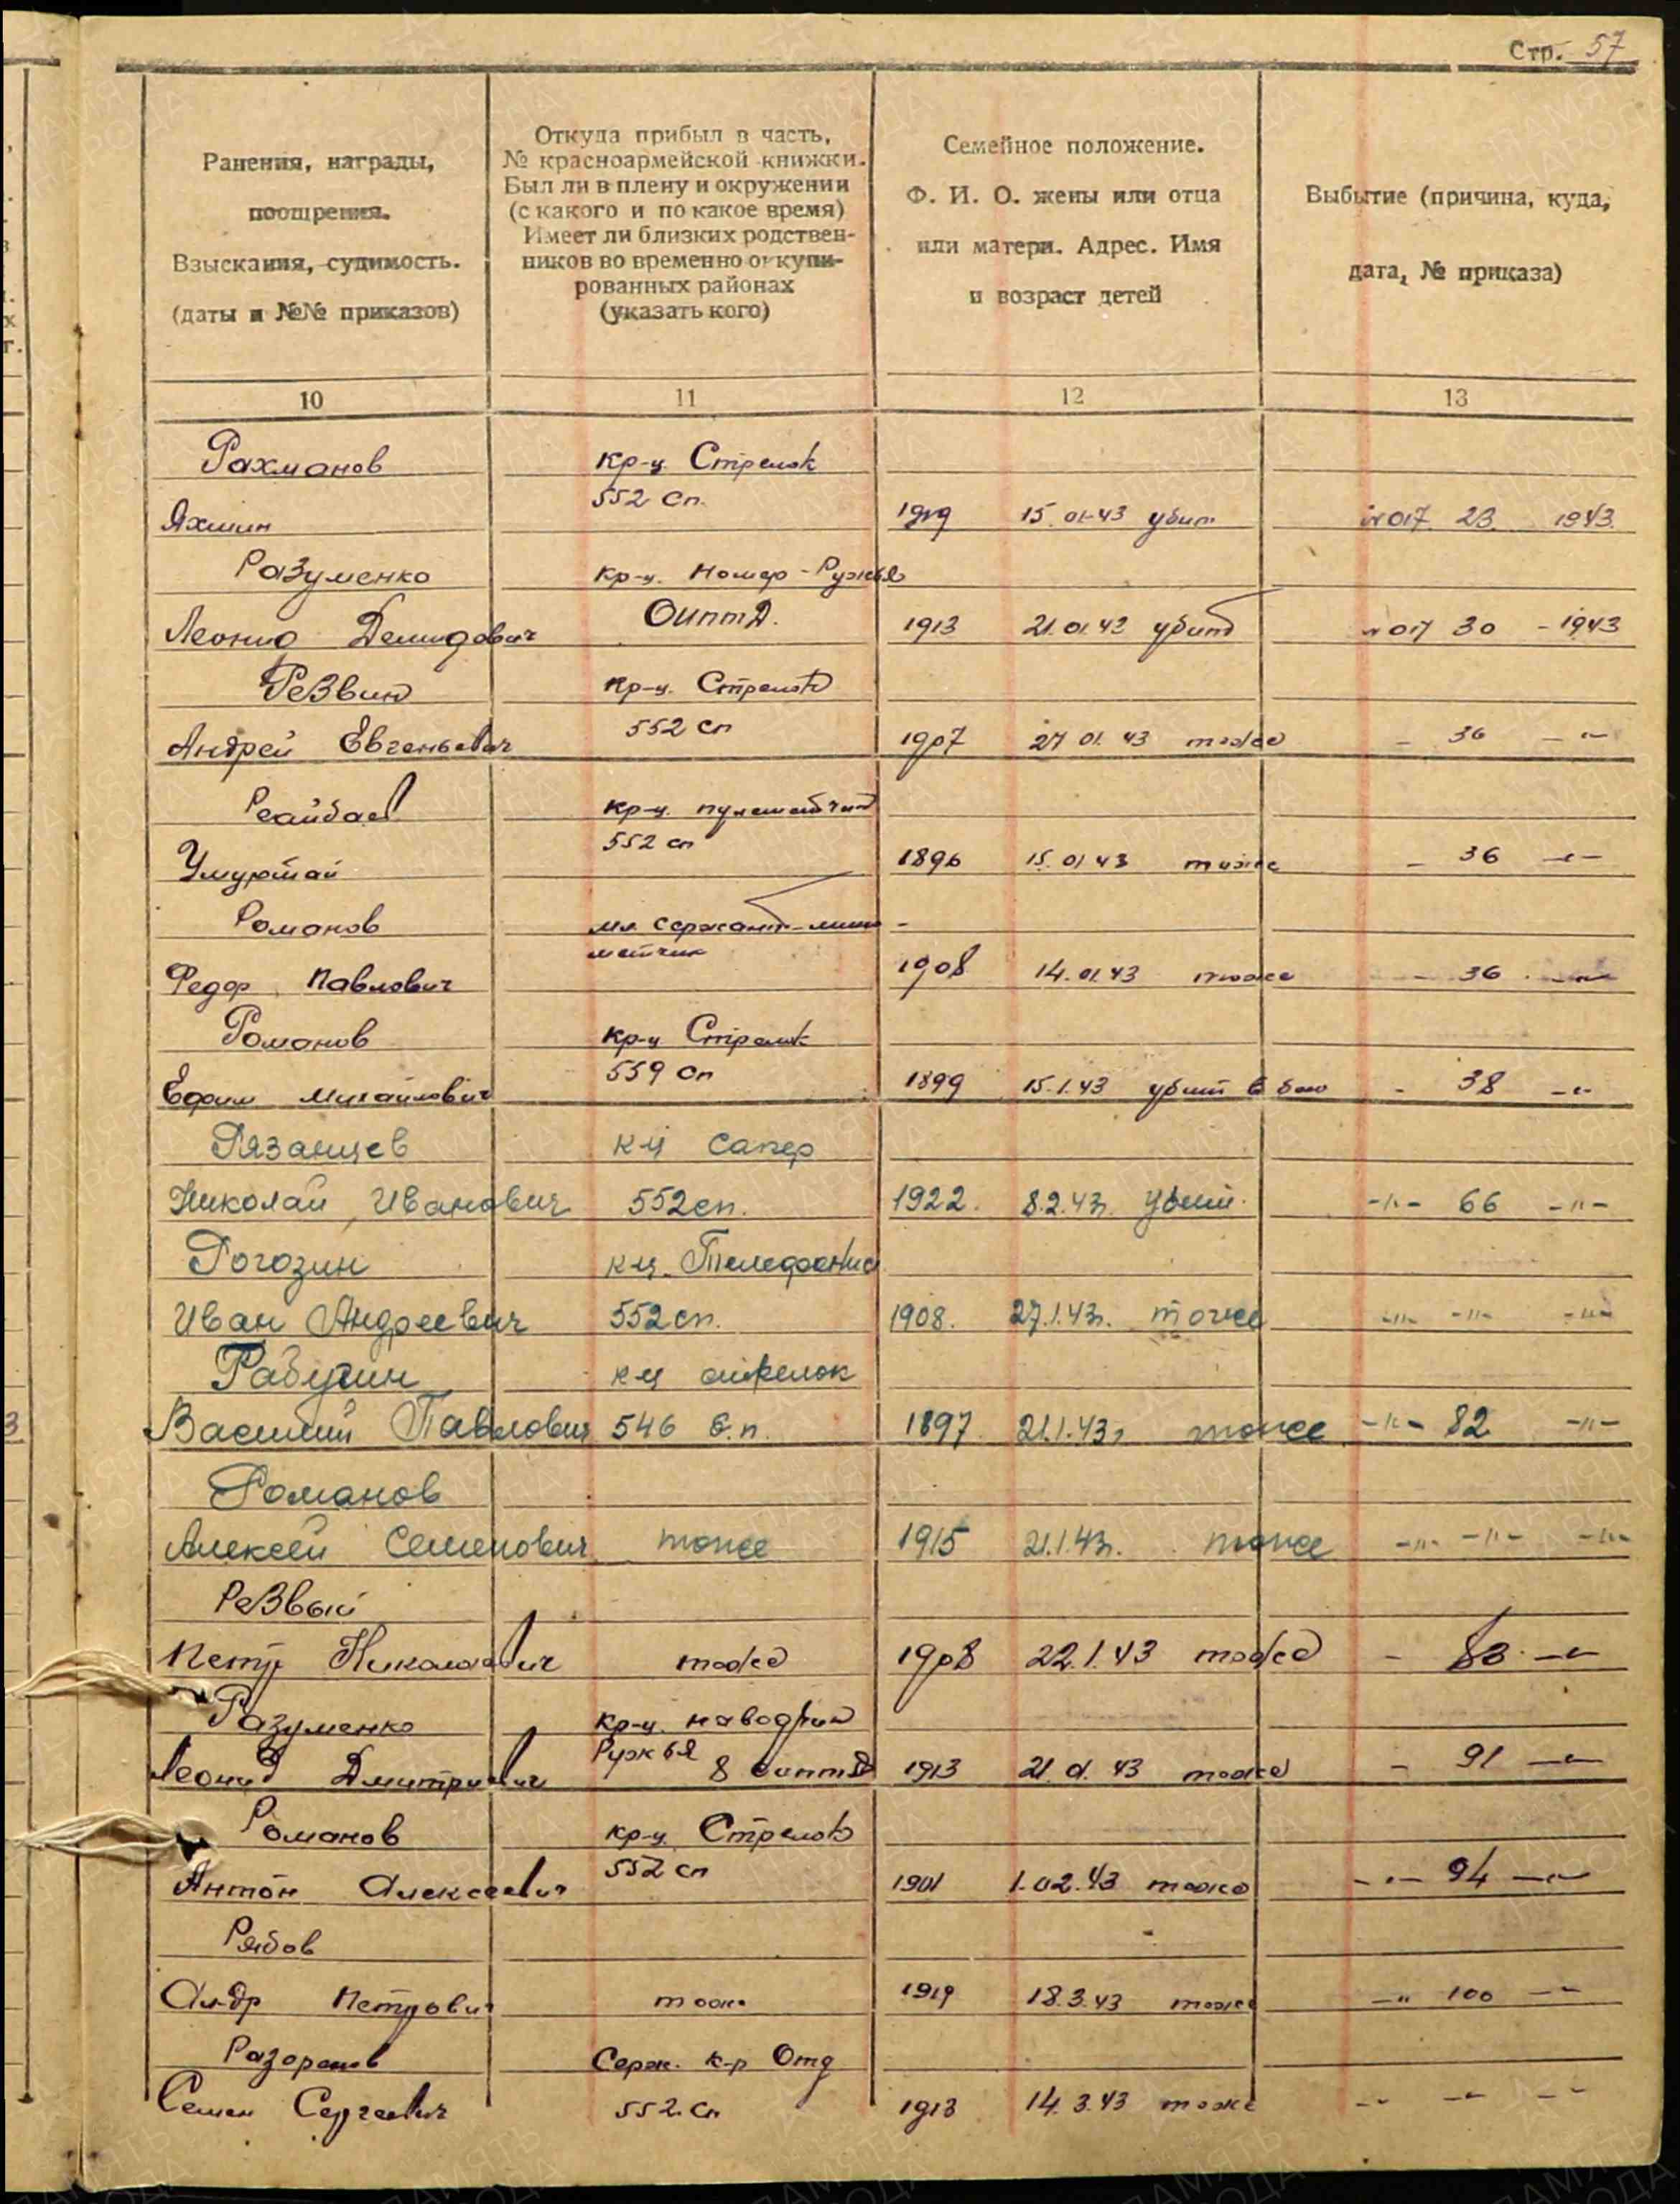 Стр. 57
Ранения, награды,
поощрения.
Взыскания, судимость.
(даты и №№ приказов)
Откуда прибыл в часть,
№ красноармейской книжки.
Был ли в плену и окружении
(с какого и по какое время)
Имеет ли близких родствен-
ников во временно оккупи-
рованных районах
(указать кого)
Семейное положение.
Ф. И. О. жены или отца
или матери. Адрес. Имя
и возраст детей
Выбытие (причина, куда,
дата, № приказа)
10 11 12 13
Рахманов кр-ц. Стрелок
552 сп.
Яхшин 1919 15.01.43 убит №017 23 1943.
Разуменко кр-ц. Номер-Ружья
Леонид Демидович ОИптД. 1913 21.01.43 убит №017 30 - 1943
Резвин кр-ц. Стрелок
Андрей Евгеньевич 552 сп 1907 27.01.43 тоже - 36 - "-
кр-ц. пулеметчик
Умуртай 552 сп 1896 15.01.43 тоже - 36 -"-
Романов мл. сержант-мино-
метчик
Федор Павлович 1908 14.01.43 тоже - 36 -"-
Романов кр-ц Стрелок
Ефим Михайлович 559 сп 1899 15.1.43 убит в бою - 38 -"-
Рязанцев к-ц сапер
Николай Иванович 552 сп. 1922. 8.2.43г. убит. -"- 66 -"-
Рогозин к-ц. Телефонис
Иван Андреевич 552 сп. 1908. 27.1.43г. тоже -"- -"- -"-
Рабушин к-ц стрелок
Василий Павлович 546 с.п. 1897. 21.1.43г тоже -"- 82 -"-
Романов
Алексей Семенович тоже 1915 21.1.43г. тоже -"- -"- -"-
Резвый
Петр Николаевич тоже 1908 22.1.43 тоже - 83 -"-
Разуменко кр-ц. наводчик
Ружья
Леонид Дмитриевич 8 оиптд 1913 21.01.43 тоже - 91 -"-
Романов кр-ц. Стрелок
Антон Алексеевич 552 сп 1901 1.02.43 тоже -"- 94 -"-
Рябов
Ал-др Петрович тоже 1919 18.3.43 тоже -" 100 -"-
Разоренов Серж. к-р Отд
Семен Сергеевич 552 сп 1913 14.3.43 тоже -"- -"- -"-